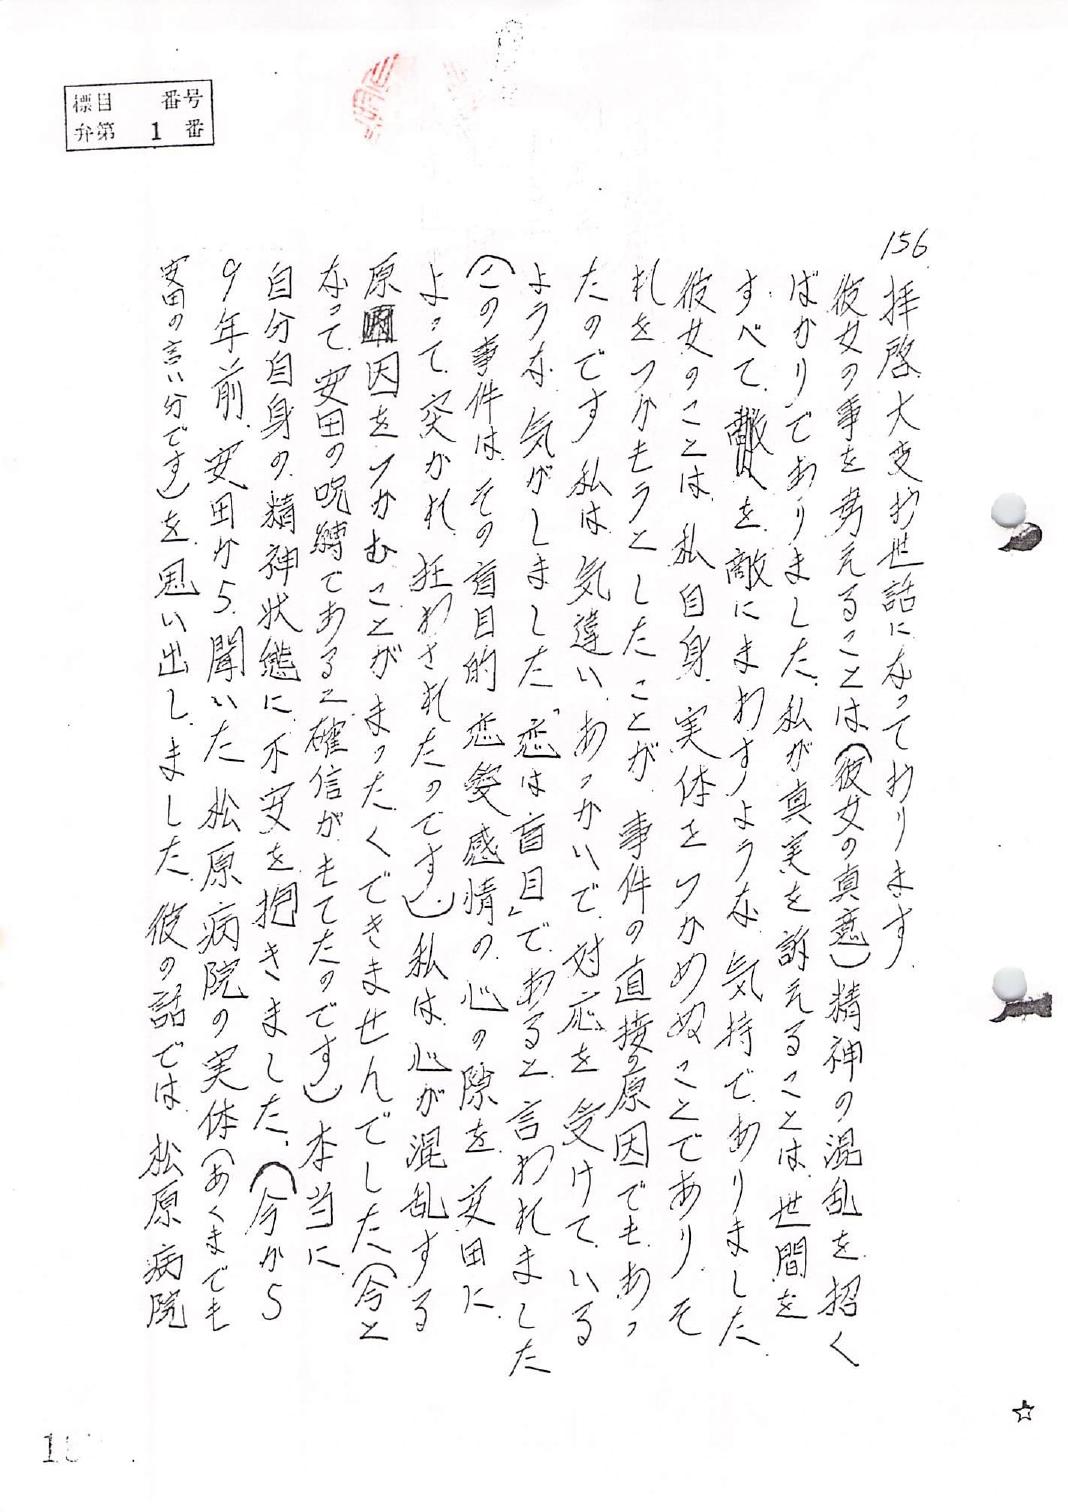 標目 番号
弁第 1 番
156
拝啓、大変お世話になっております。
彼女の事を考えることは(彼女の真意)精神の混乱を招く
ばかりでありました。私が真実を訴えることは、世間を
すべて、敵を、敵にまわすような気持でありました
彼女のことは、私自身、実体をつかめぬことであり、そ
れをつかもうとしたことが、事件の直接の原因でもあっ
たのです 私は気違いあつかいで、対応を受けている
ような気がしました「恋は盲目」であると、言われました
(この事件は、その盲目的恋愛感情の心の隙を、安田に
よって、突かれ、狂わされたのです。)私は心が混乱する
原因をつかむことがまったくできませんでした(今と
なって、安田の呪縛であると確信がもてたのです)本当に
自分自身の精神状態に不安を抱きました。(今から
9年前、安田から、聞いた松原病院の実体(あくまでも
安田の言い分です)を思い出しました。彼の話では、松原病院
☆